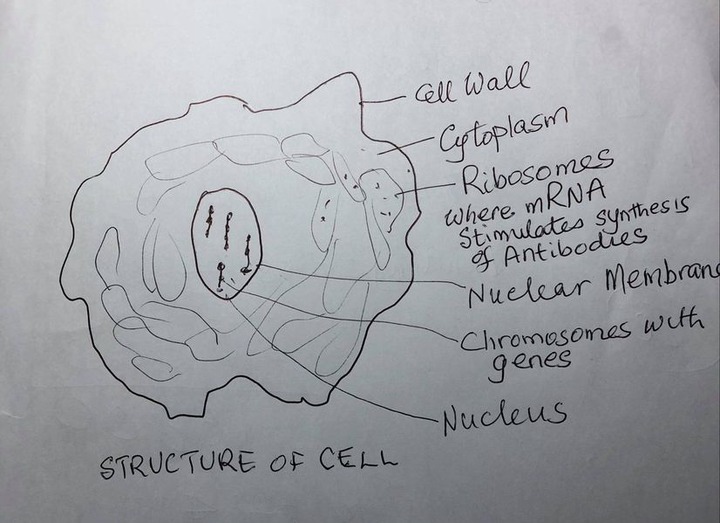 Cell Wall
Cytoplasm
Ribosomes
where mRNA
Stimulates synthesis
of Antibodies
Nuclear Membran
Chromosomes with
genes
Nucleus
STRUCTURE OF CELL